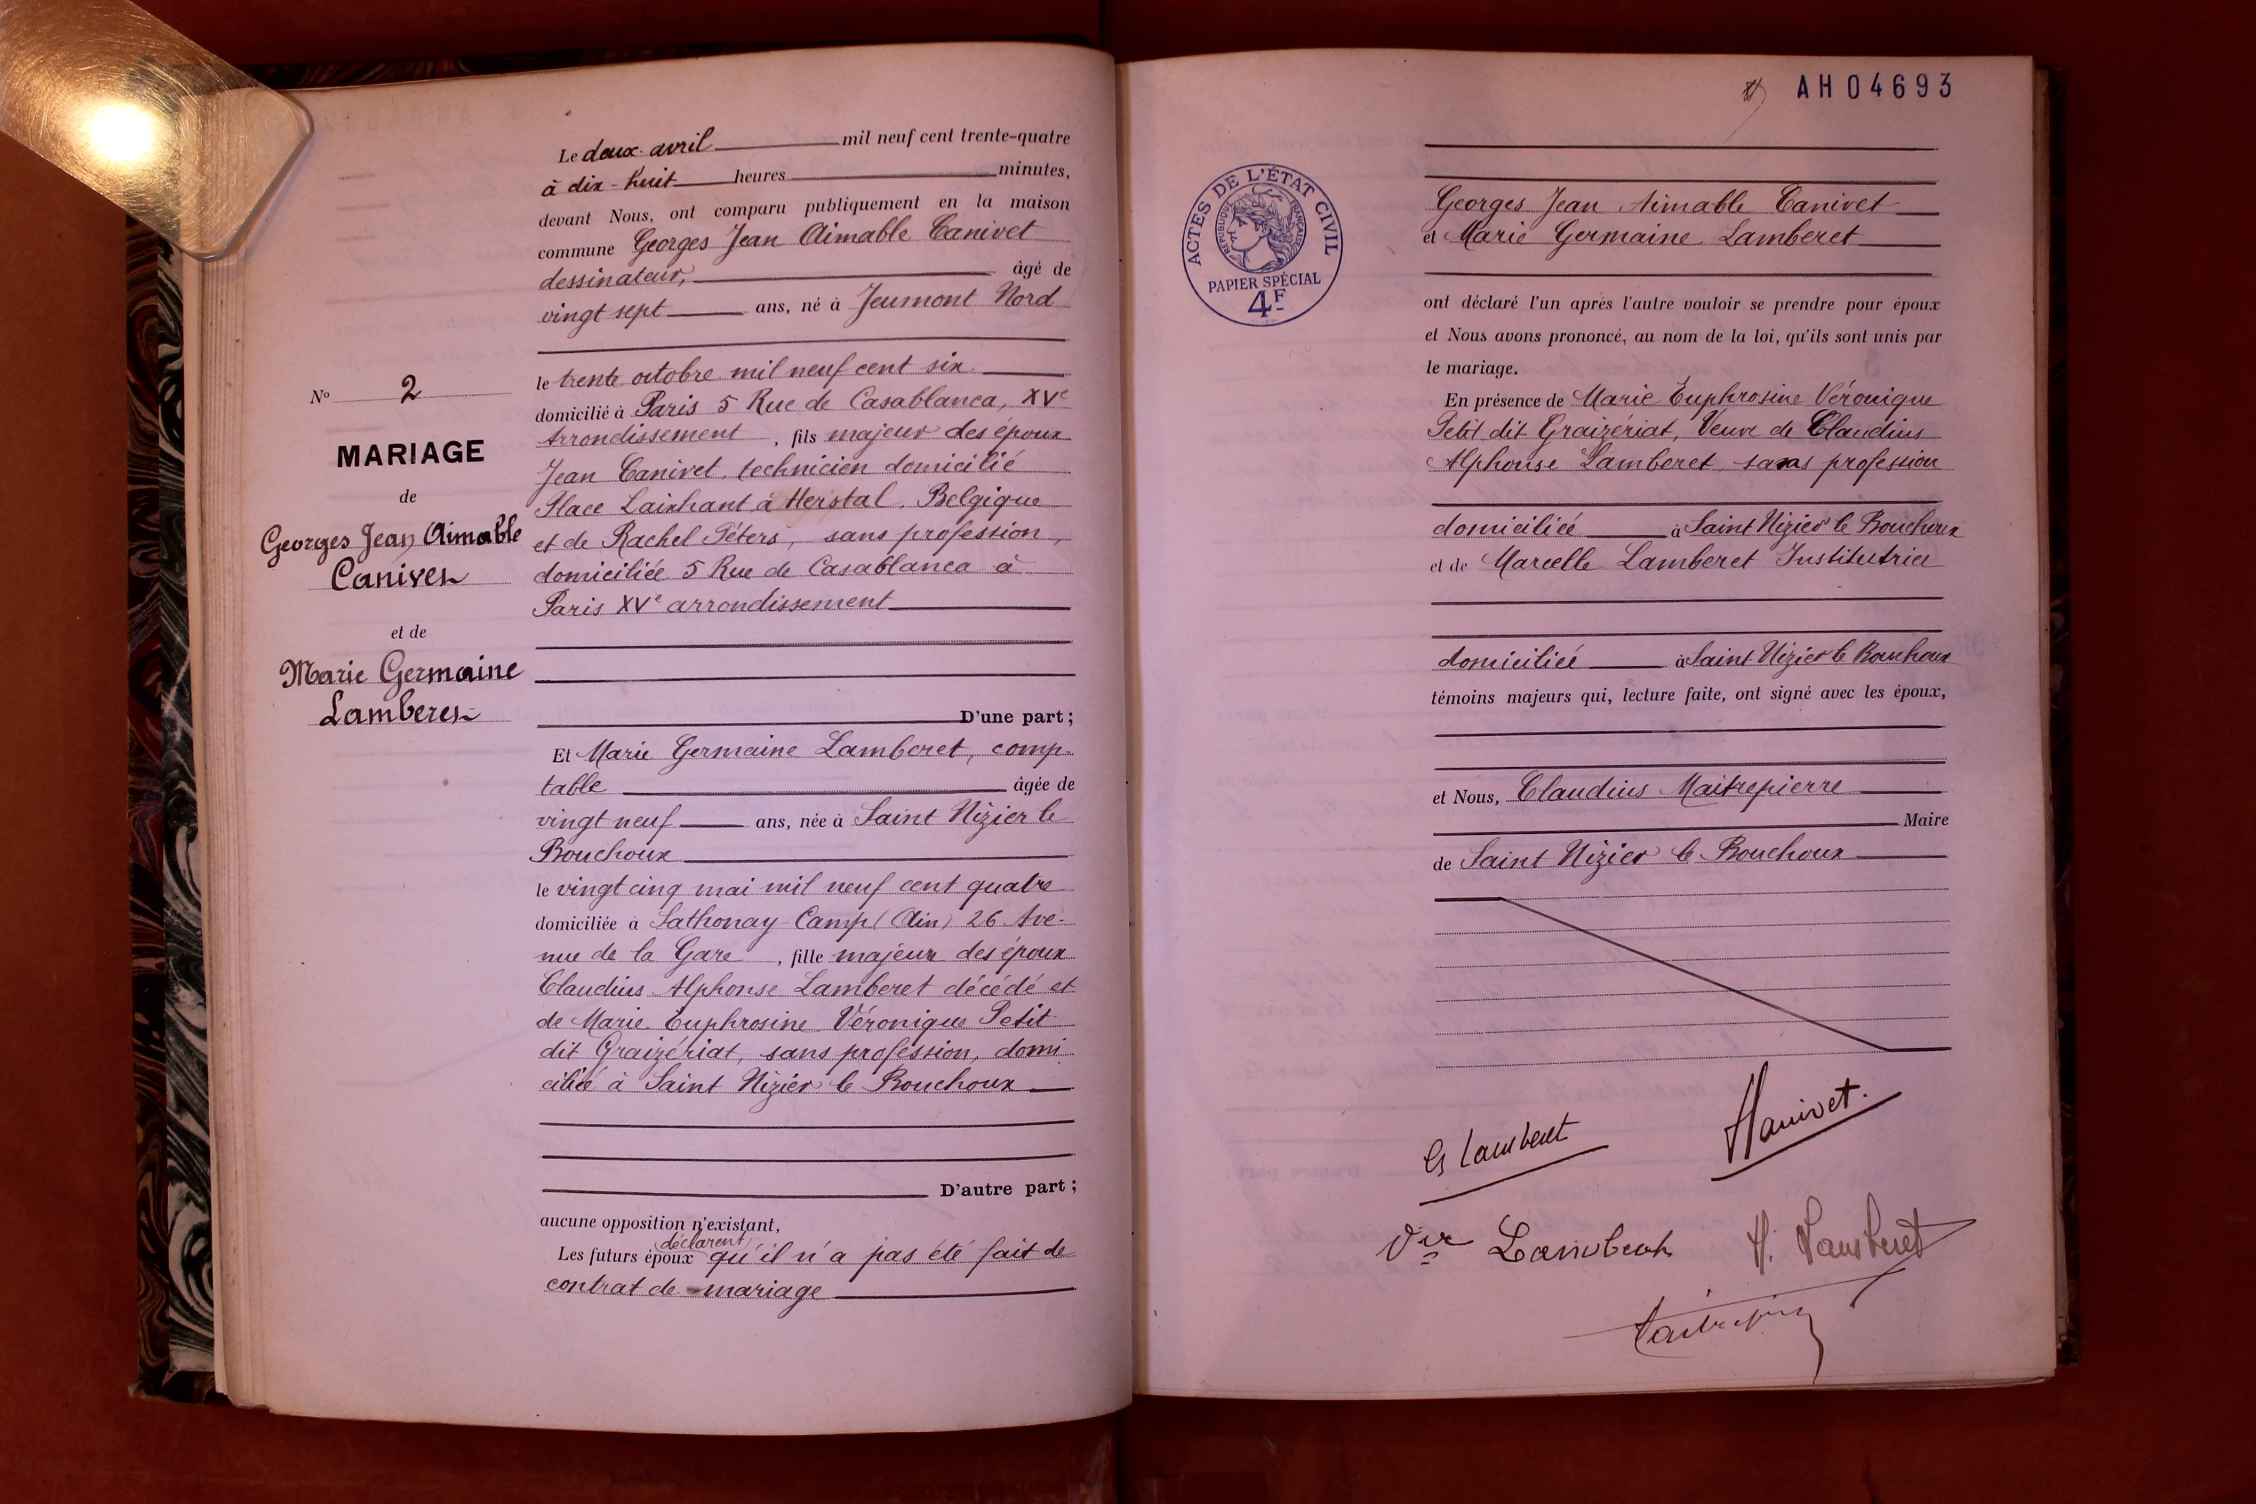 Le deux avril mil neuf cent trente-quatre
à dix-huit heures minutes,
devant Nous, ont comparu publiquement en la maison
commune Georges Jean Aimable Canivet
dessinateur, âgé de
vingt sept ans, né à Jeumont Nord
le trente octobre mil neuf cent six
domicilié à Paris 5 Rue de Casablanca, XVe
Arrondissement, fils majeur des époux
Jean Canivet, technicien domicilié
Place Lairhant à Herstal, Belgique
et de Rachel Péters, sans profession,
domiciliée 5 Rue de Casablanca à
Paris XVe arrondissement
D'une part;
Et Marie Germaine Lamberet, comp-
table âgée de
vingt neuf ans, née à Saint Nizier le
Bouchoux
le vingt cinq mai mil neuf cent quatre
domiciliée à Sathonay-Camp (Ain) 26 Ave-
nue de la Gare, fille majeure des époux
Claudius Alphonse Lamberet décédé et
de Marie Euphrosine Véronique Petit
dit Graizériat, sans profession, domi
ciliée à Saint Nizier le Bouchoux
D'autre part;
aucune opposition n'existant,
déclarent
Les futurs époux qu'il n'a pas été fait de
contrat de mariage
No 2
MARIAGE
de
Georges Jean Aimable
Canivet
et de
Marie Germaine
Lamberet
AH04693
ACTES DE L'ÉTAT CIVIL
RÉPUBLIQUE FRANÇAISE
PAPIER SPÉCIAL
4F
Georges Jean Aimable Canivet
et Marie Germaine Lamberet
ont déclaré l'un après l'autre vouloir se prendre pour époux
et Nous avons prononcé, au nom de la loi, qu'ils sont unis par
le mariage.
En présence de Marie Euphrosine Véronique
Petit dit Graizériat, Veuve de Claudius
Alphonse Lamberet sans profession
domiciliée à Saint Nizier le Bouchoux
et de Marcelle Lamberet Institutrice
domiciliée à Saint Nizier le Bouchoux
témoins majeurs qui, lecture faite, ont signé avec les époux,
et Nous, Claudius Maitrepierre
Maire
de Saint Nizier le Bouchoux
G Lamberet
Canivet.
Vve Lamberet
M. Lamberet
Maitrepierre